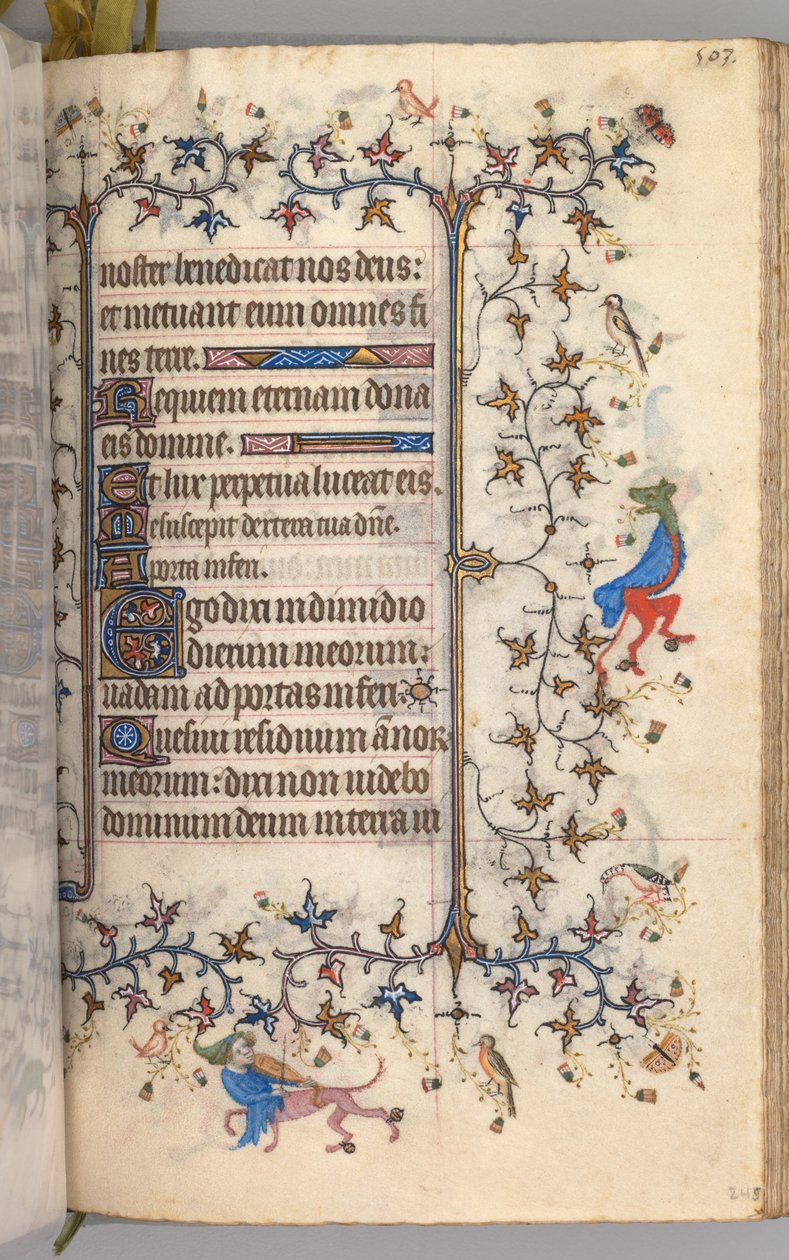 507.
noster benedicat nos deus:
et metuant eum omnes fi
nes terre.
Requiem eternam dona
eis domine.
Et lux perpetua luceat eis.
Me suscepit dextera tua dñe.
A porta inferi.
Ego dixi in dimidio
dierum meorum:
vadam ad portas inferi.
Quesivi residuum ānorꝝ
meorum: dixi non videbo
dominum deum in terra vi
245